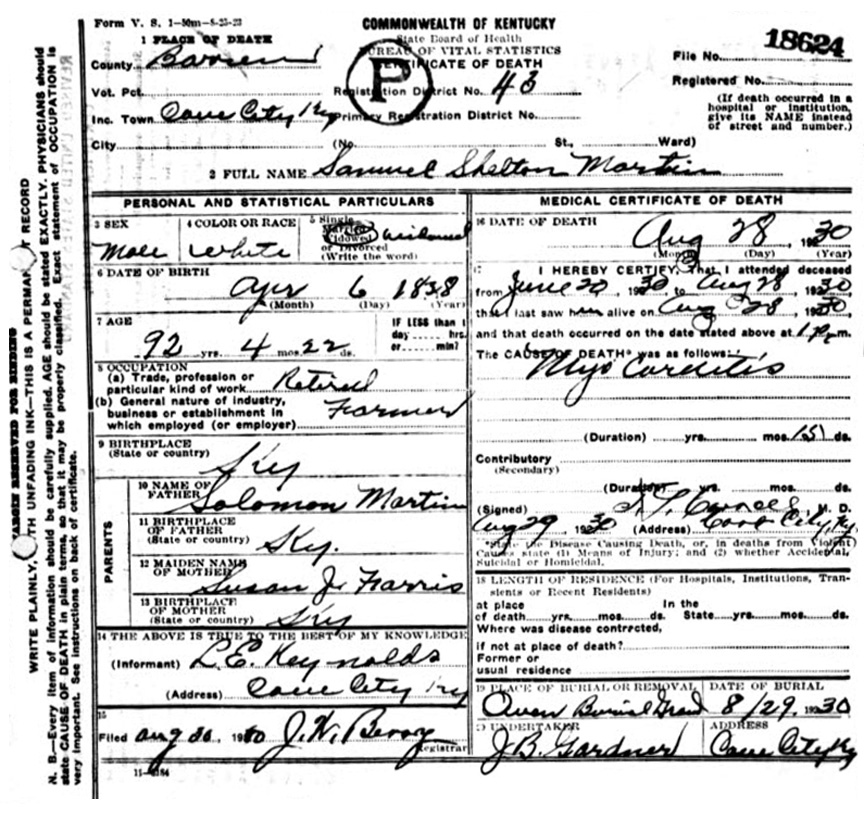 Form V. S. 1-50m-8-23-23
COMMONWEALTH OF KENTUCKY
State Board of Health
BUREAU OF VITAL STATISTICS
CERTIFICATE OF DEATH
P
18624
File No.
Registered No.
(If death occurred in a hospital or institution, give its NAME instead of street and number.)
1 PLACE OF DEATH
County Barren
Vot. Pct.
Registration District No. 43
Inc. Town Cave City Ky
Primary Registration District No.
City
(No.
St.,
Ward)
2 FULL NAME Samuel Shelton Martin
PERSONAL AND STATISTICAL PARTICULARS
3 SEX
Male
4 COLOR OR RACE
White
5 Single
Married
Widowed
or Divorced
(Write the word)
Widowed
6 DATE OF BIRTH
Apr 6 1838
(Month) (Day) (Year)
7 AGE
92 yrs. 4 mos. 22 ds.
IF LESS than 1
day ...... hrs.
or ...... min?
8 OCCUPATION
(a) Trade, profession or
particular kind of work Retired
(b) General nature of industry,
business or establishment in
which employed (or employer)
Farmer
9 BIRTHPLACE
(State or country)
Ky
PARENTS
10 NAME OF
FATHER
Solomon Martin
11 BIRTHPLACE
OF FATHER
(State or country)
Ky.
12 MAIDEN NAME
OF MOTHER
Susan J. Farris
13 BIRTHPLACE
OF MOTHER
(State or country)
Ky
14 THE ABOVE IS TRUE TO THE BEST OF MY KNOWLEDGE
(Informant) L. E. Reynolds
(Address) Cave City Ky
15
Filed Aug 30 1930
Registrar
MEDICAL CERTIFICATE OF DEATH
16 DATE OF DEATH
Aug 28 1930
(Month) (Day) (Year)
17 I HEREBY CERTIFY, That I attended deceased
from June 20, 1930 to Aug 28 1930
that I last saw him alive on Aug 28 1930
and that death occurred on the date stated above at 1 p.m.
The CAUSE OF DEATH* was as follows:
Myo Carditis
(Duration) yrs. mos. 15 ds.
Contributory
(Secondary)
(Duration) yrs. mos. ds.
(Signed) M. D.
Aug 29 1930 (Address) Cave City, Ky
*State the Disease Causing Death, or, in deaths from Violent Causes state (1) Means of Injury; and (2) whether Accidental, Suicidal or Homicidal.
18 LENGTH OF RESIDENCE (For Hospitals, Institutions, Transients or Recent Residents)
at place In the
of death yrs. mos. ds. State yrs. mos. ds.
Where was disease contracted,
if not at place of death?
Former or
usual residence
19 PLACE OF BURIAL OR REMOVAL
DATE OF BURIAL
8/29. 1930
UNDERTAKER
J. B. Gardner
ADDRESS
Cave City Ky
MARGIN RESERVED FOR BINDING
WRITE PLAINLY, WITH UNFADING INK—THIS IS A PERMANENT RECORD
N. B.—Every item of information should be carefully supplied. AGE should be stated EXACTLY. PHYSICIANS should
state CAUSE OF DEATH in plain terms, so that it may be properly classified. Exact statement of OCCUPATION is
very important. See instructions on back of certificate.